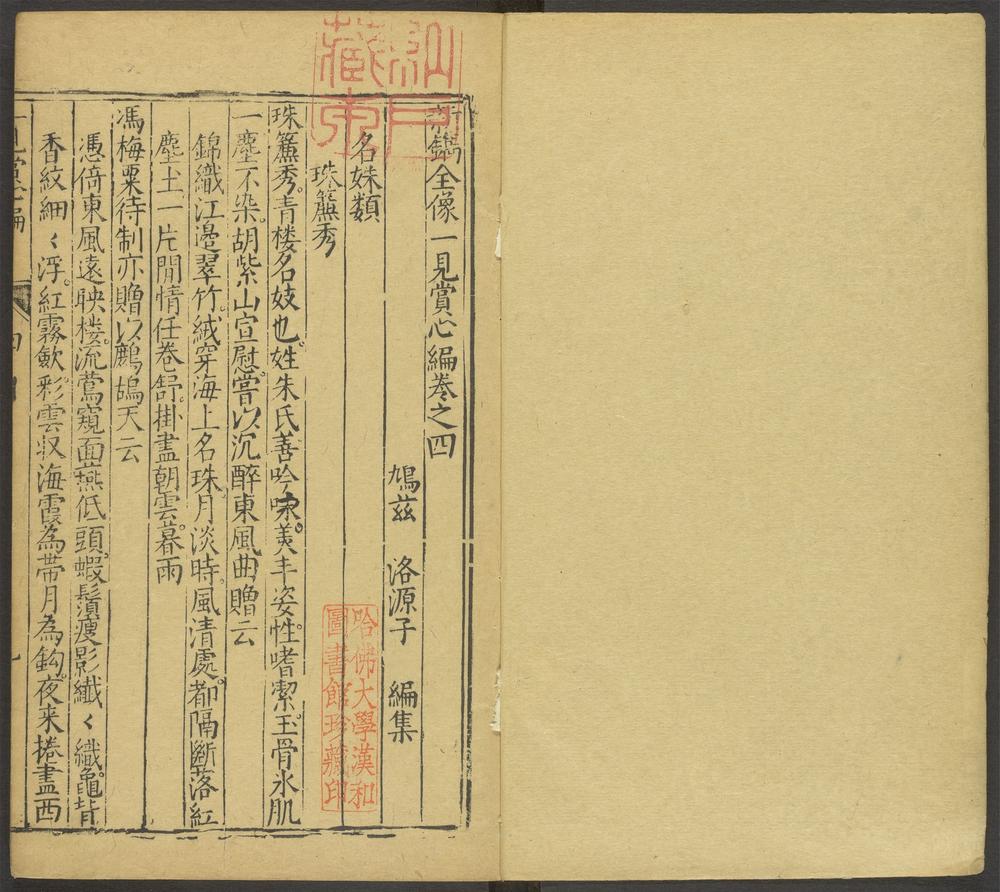 新鐫全像一見賞心編卷之四
鳩茲　洛源子　編集
名姝類
珠簾秀
珠簾秀。青楼名妓也。姓朱氏善吟咏。美丰姿。性嗜潔。玉骨氷肌
一塵不染。胡紫山宣慰嘗以沉醉東風曲贈云
錦織江邊翠竹。絨穿海上名珠。月淡時。風清處。都隔断落紅
塵土一片閒情任卷舒。掛盡朝雲。暮雨
馮梅粟待制亦贈以鷓鴣天云
憑倚東風遠映楼。流鶯窺面燕低頭。蝦鬚瘦影纖〻織。龜背
香紋細〻浮。紅霧歛。彩雲収海霞為帯月為鈎。夜来捲盡西
哈佛大學漢和
圖書館珍藏印